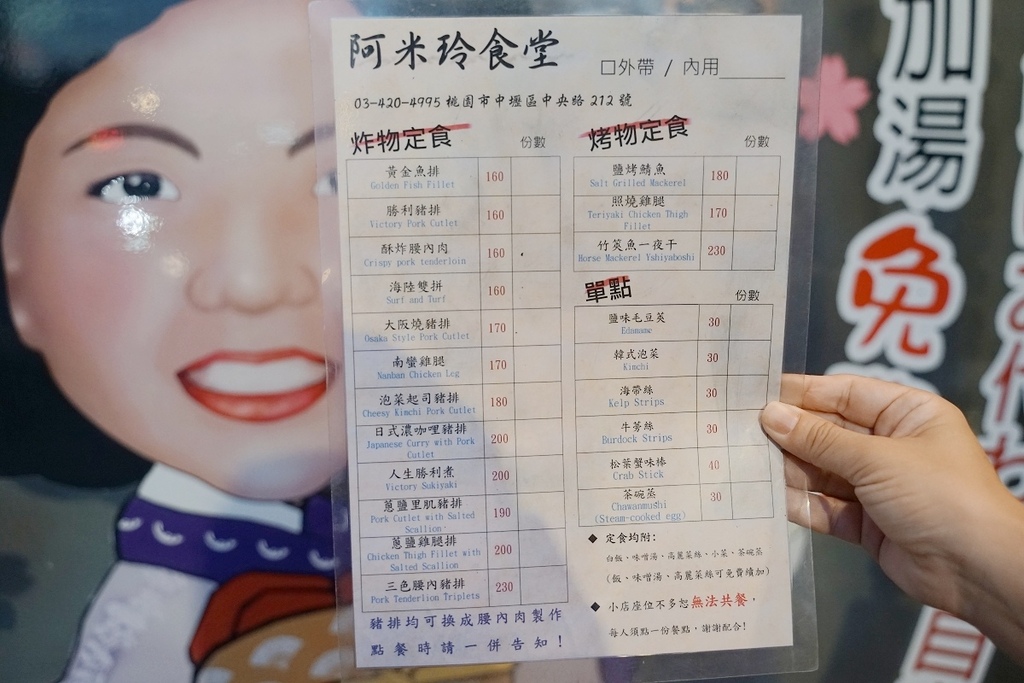 阿米玲食堂
口外帶 / 內用
03-420-4995 桃園市中壢區中央路 212 號
炸物定食 份數
黃金魚排 160
Golden Fish Fillet
勝利豬排 160
Victory Pork Cutlet
酥炸腰內肉 160
Crispy pork tenderloin
海陸雙拼 160
Surf and Turf
大阪燒豬排 170
Osaka Style Pork Cutlet
南蠻雞腿 170
Nanban Chicken Leg
泡菜起司豬排 180
Cheesy Kimchi Pork Cutlet
日式濃咖哩豬排 200
Japanese Curry with Pork
Cutlet
人生勝利煮 200
Victory Sukiyaki
蔥鹽里肌豬排 190
Pork Cutlet with Salted
Scallion
蔥鹽雞腿排 200
Chicken Thigh Fillet with
Salted Scallion
三色腰內豬排 230
Pork Tenderlion Triplets
豬排均可換成腰內肉製作
點餐時請一併告知！
烤物定食 份數
鹽烤鯖魚 180
Salt Grilled Mackerel
照燒雞腿 170
Teriyaki Chicken Thigh
Fillet
竹筴魚一夜干 230
Horse Mackerel Yshiyaboshi
單點 份數
鹽味毛豆莢 30
Edamame
韓式泡菜 30
Kimchi
海帶絲 30
Kelp Strips
牛蒡絲 30
Burdock Strips
松葉蟹味棒 40
Crab Stick
茶碗蒸 30
Chawanmushi
(Steam-cooked egg)
◆ 定食均附:
白飯、味噌湯、高麗菜絲、小菜、茶碗蒸
(飯、味噌湯、高麗菜絲可免費續加)
◆ 小店座位不多恕無法共餐，
每人須點一份餐點，謝謝配合!
加湯免